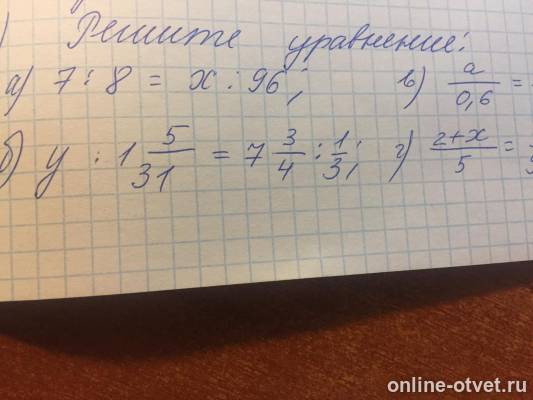 ) Решите уравнение:
а) 7 : 8 = x : 96; в) a/0,6 =
б) y : 1 5/31 = 7 3/4 : 1/3; г) 2+x/5 =
online-otvet.ru